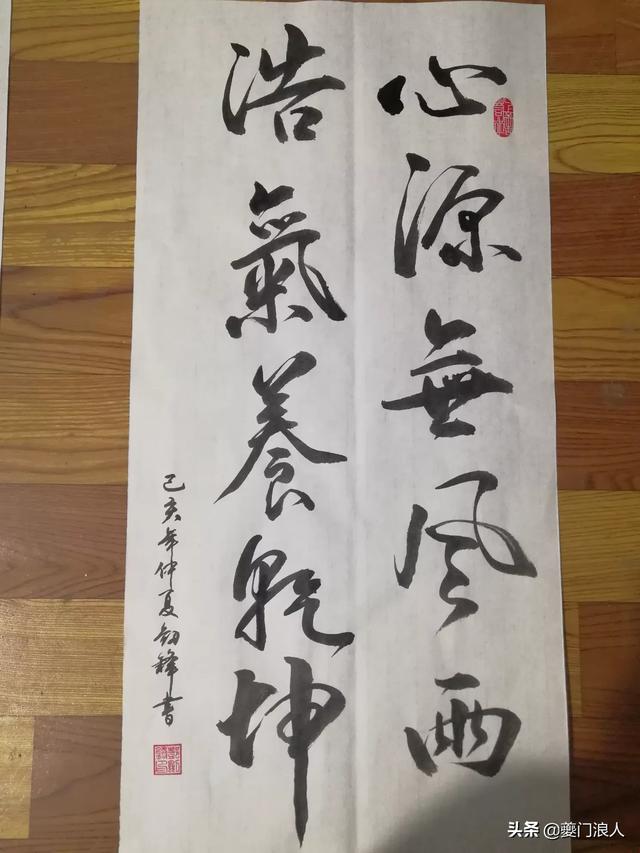 心源無風雨
浩氣養乾坤
己亥年仲夏劍鋒書
头条 @夔门浪人